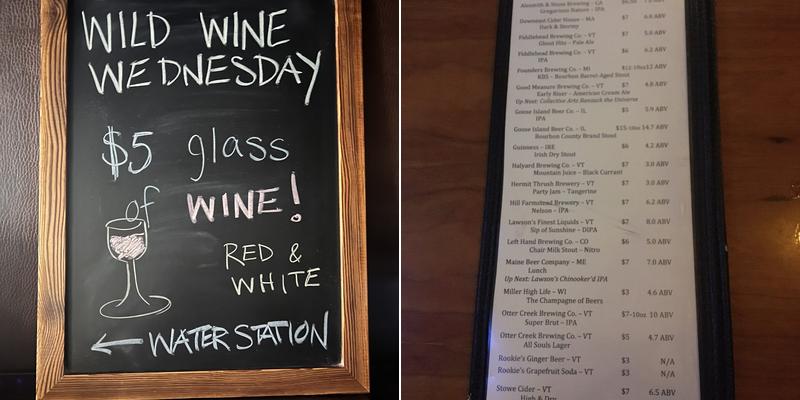 WILD WINE
WEDNESDAY
$5 glass
of
WINE!
RED &
WHITE
← WATER STATION
Gregarious Nature – IPA
Downeast Cider House – MA $7 6.0 ABV
Dark & Stormy
Fiddlehead Brewing Co. – VT $7 5.0 ABV
Ghost Hitz – Pale Ale
Fiddlehead Brewing Co. – VT $6 6.2 ABV
IPA
Founders Brewing Co. – MI $12-10oz 12 ABV
KBS – Bourbon Barrel-Aged Stout
Good Measure Brewing Co. – VT $7 4.8 ABV
Early River – American Cream Ale
Up Next: Collective Arts Ransack the Universe
Goose Island Beer Co. – IL $5 5.9 ABV
IPA
Goose Island Beer Co. – IL $15-10oz 14.7 ABV
Bourbon County Brand Stout
Guinness – IRE $6 4.2 ABV
Irish Dry Stout
Halyard Brewing Co. – VT $7 3.0 ABV
Mountain Juice – Black Currant
Hermit Thrush Brewery – VT $7 3.0 ABV
Party Jam – Tangerine
Hill Farmstead Brewery – VT $7 6.2 ABV
Nelson – IPA
Lawson's Finest Liquids – VT $7 8.0 ABV
Sip of Sunshine – DIPA
Left Hand Brewing Co. – CO $6 5.0 ABV
Chair Milk Stout – Nitro
Maine Beer Company – ME $7 7.0 ABV
Lunch
Up Next: Lawson's Chinooker'd IPA
Miller High Life – WI $3 4.6 ABV
The Champagne of Beers
Otter Creek Brewing Co. – VT $7-10oz 10 ABV
Super Brut – IPA
Otter Creek Brewing Co. – VT $5 4.7 ABV
All Souls Lager
Rookie's Ginger Beer – VT $3 N/A
Rookie's Grapefruit Soda – VT $3 N/A
Stowe Cider – VT $7 6.5 ABV
High & Dry